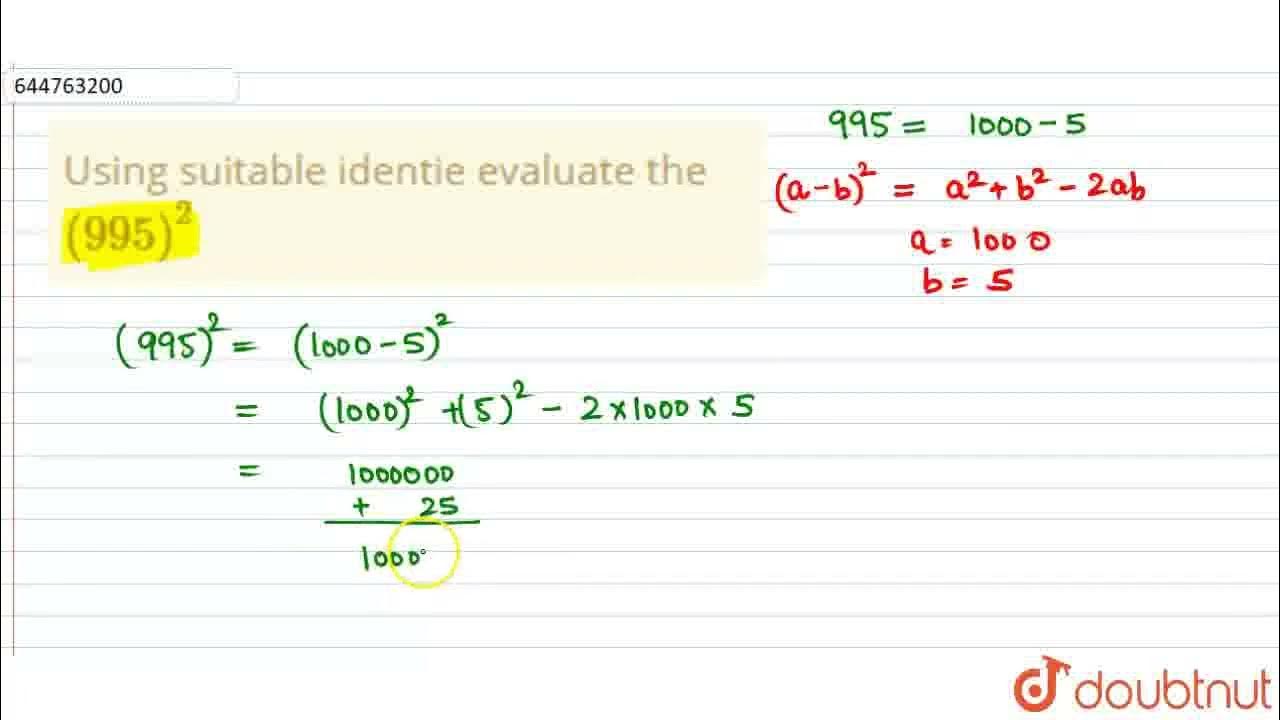 644763200
Using suitable identie evaluate the
(995)²
995 = 1000 - 5
(a-b)² = a² + b² - 2ab
a = 1000
b = 5
(995)² = (1000 - 5)²
= (1000)² + (5)² - 2 × 1000 × 5
= 1000000
+ 25
1000
doubtnut